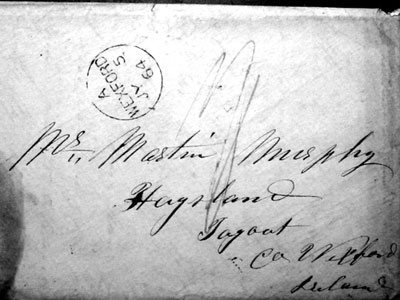 A
WEXFORD
JY 5
64
Mr,, Martin Murphy
Haysland
Tagoat
Co Wexford
Ireland